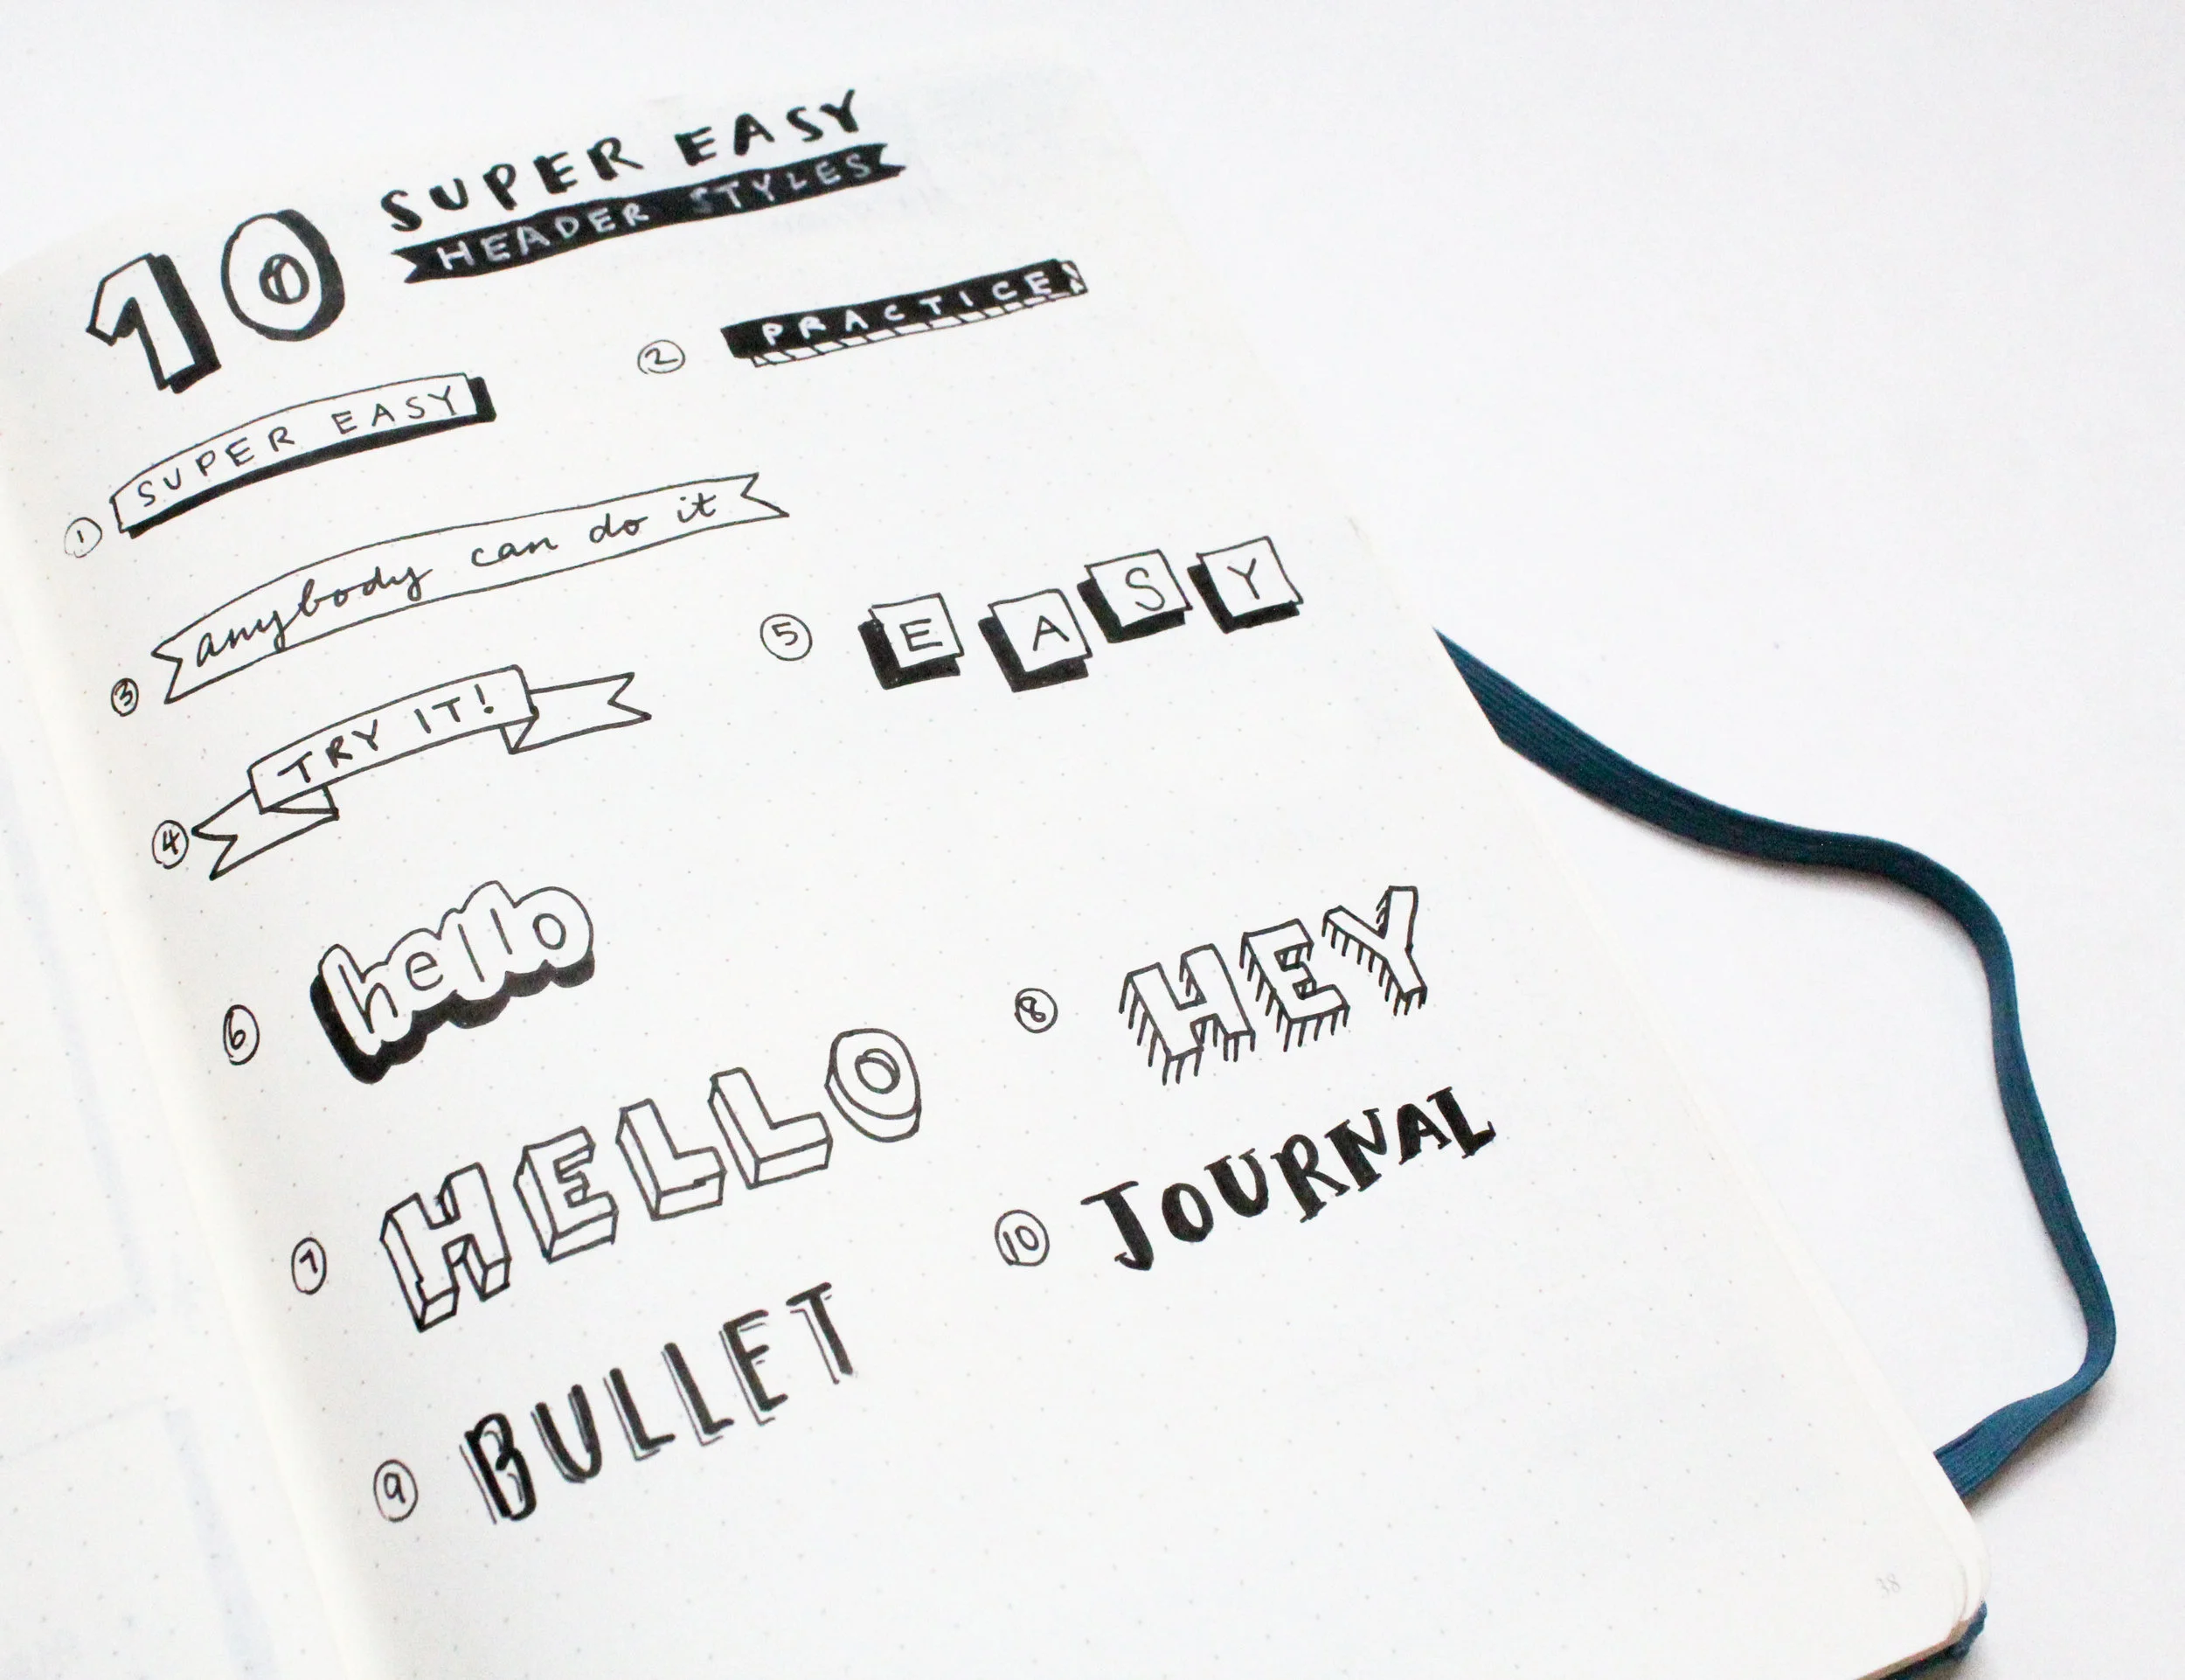 10 SUPER EASY
HEADER STYLES
1 SUPER EASY
2 PRACTICE
3 anybody can do it
4 TRY IT!
5 EASY
6 hello
7 HELLO
8 HEY
9 BULLET
10 JOURNAL
38